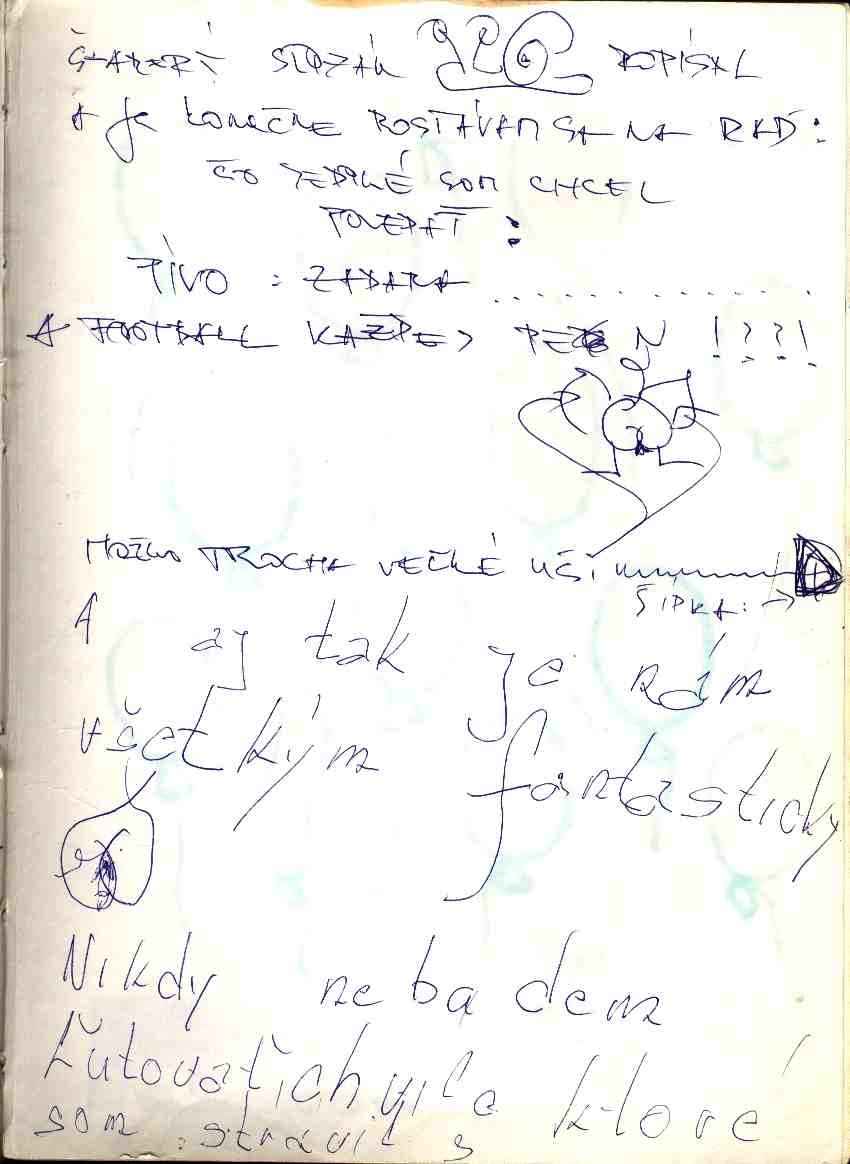 SLOŽÁK DOPÍSAL
A JA KONEČNE DOSTÁVAM SA NA RAD:
ČO JEDINÉ SOM CHCEL
POVEDAŤ :
PIVO : ZADARA ..............
A FOOTBALL KAŽDEJ DEŇ !??!
MOŽNO TROCHA VEČLÉ UŠI
ŠÍPKA: →
A aj tak je nám
všetkým fantasticky
Nikdy nebudem
Ľutovať chvíle ktoré
som strávil s